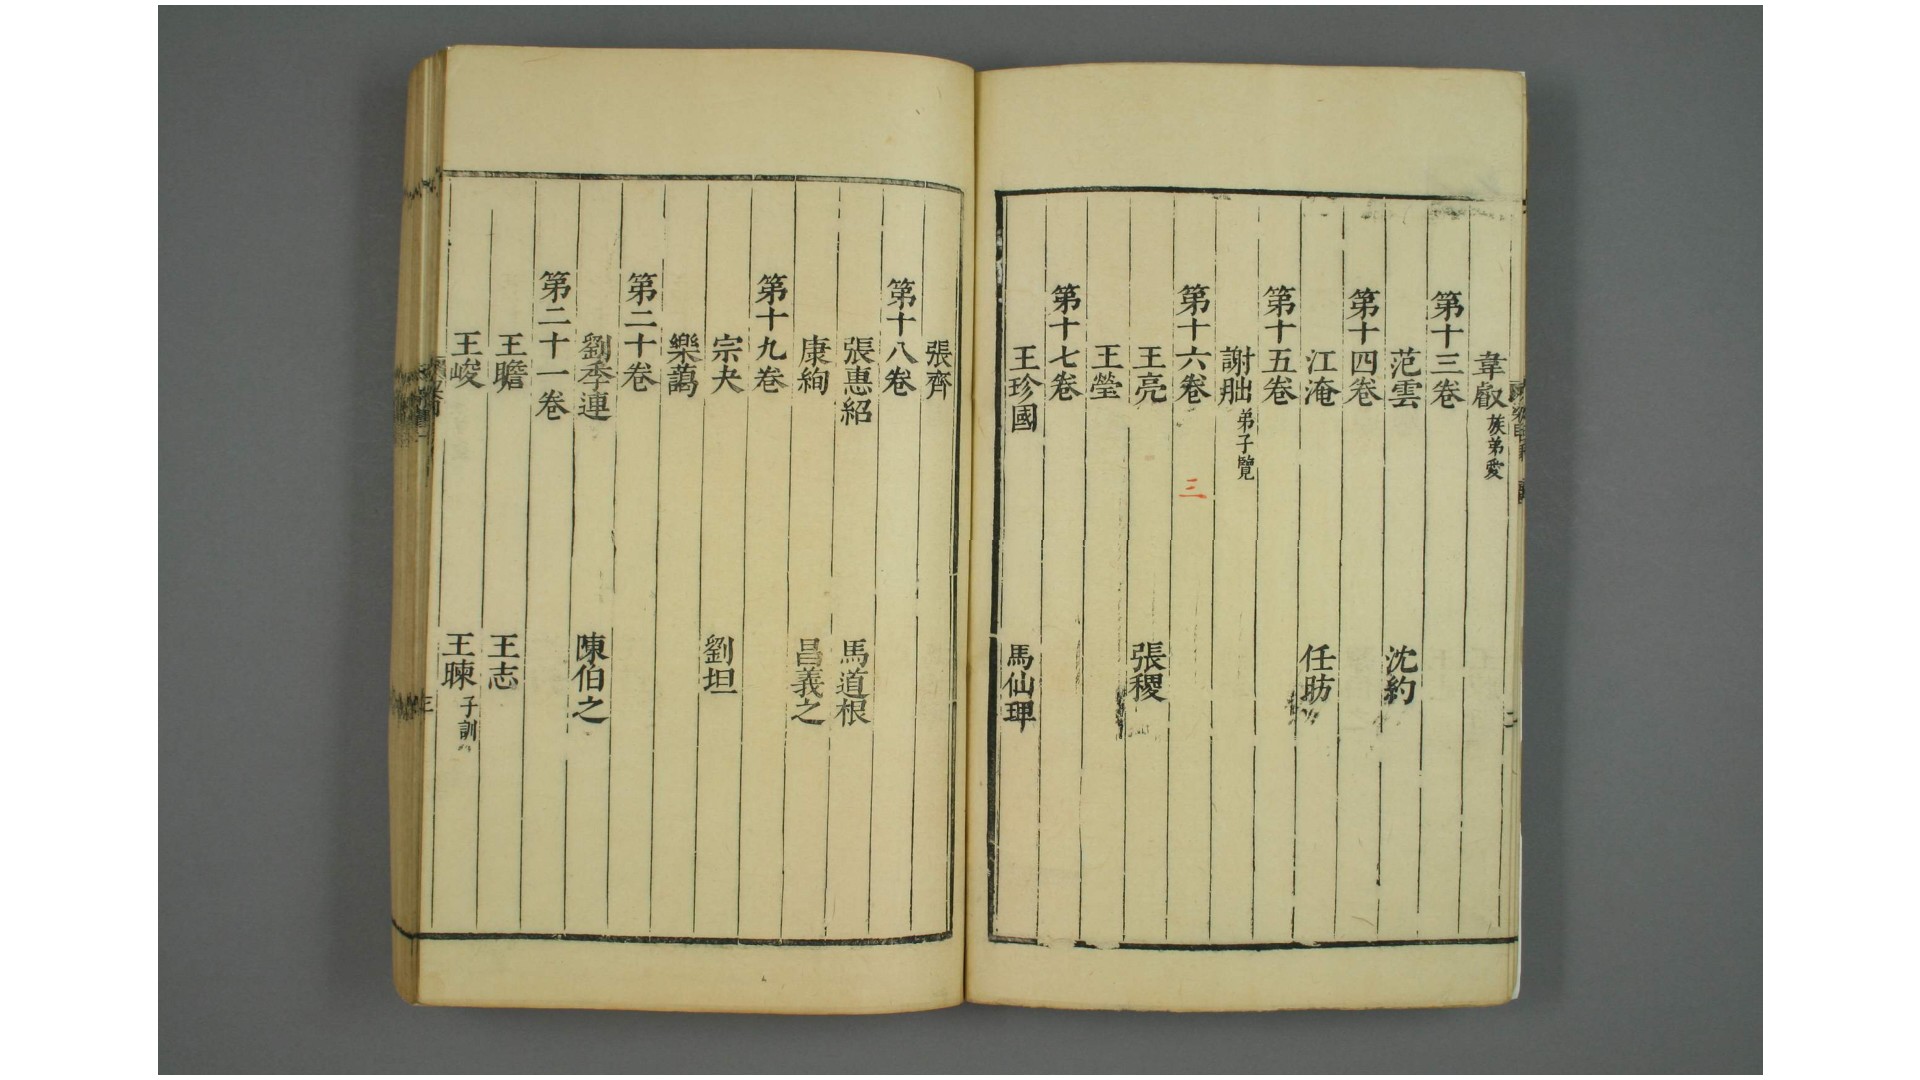 韋叡 族弟愛
第十三卷
范雲 沈約
第十四卷
江淹 任昉
第十五卷
謝朏 弟子覽
第十六卷
三
王亮 張稷
王瑩
第十七卷
王珍國 馬仙琕
張齊
第十八卷
張惠紹 馬道根
康絢 昌義之
第十九卷
宗夬 劉坦
樂藹
第二十卷
劉季連 陳伯之
第二十一卷
王瞻 王志
王峻 王暕 子訓
三